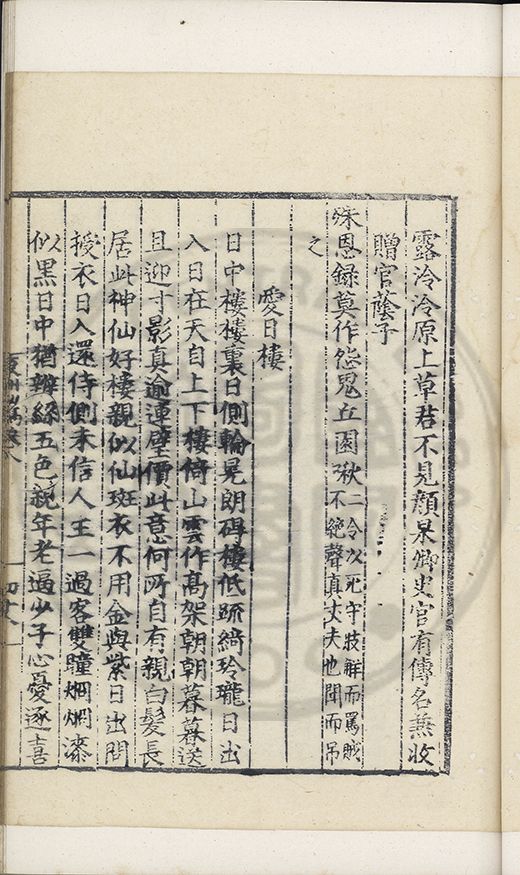 露泠泠原上草君不見顏杲卿史官有傳名無收
贈官蔭子
殊恩録莫作怨鬼丘園湫二令以死守被觧而罵賊
不絶聲真丈夫也聞而吊
之
愛日樓
日中樓樓裏日側輪晃朗碍樓低疏綺玲瓏日出
入日在天自上下樓倚山雲作髙架朝朝暮暮送
且迎寸影真逾連璧價此意何所自有親白髪長
居此神仙好樓親似仙斑衣不用金與紫日出問
授衣日入還侍側未信人王一過客雙瞳烱烱漆
似黑日中猶辨綠五色親年老過少子心憂逐喜